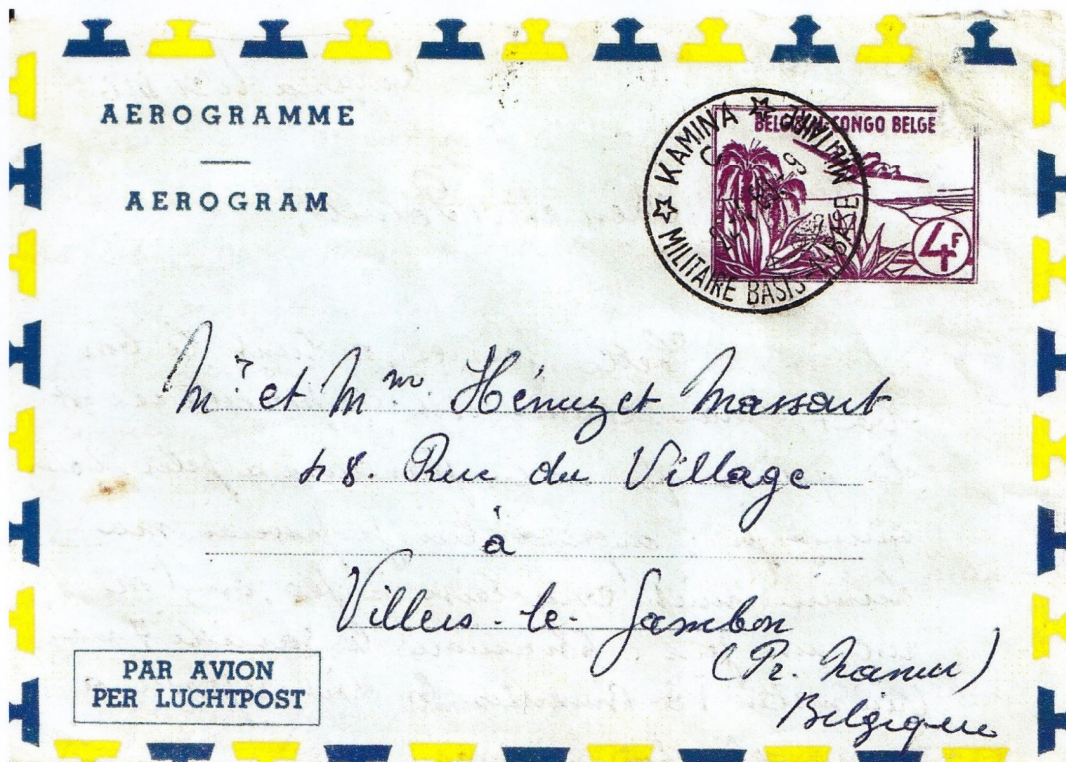 AEROGRAMME
AEROGRAM
BELGISCH-CONGO BELGE
4F
KAMINA
MILITAIRE BASIS
Mr et Mme Hénuzet Massaut
48. Rue du Village
à
Villers-le-Gambon
(Pr. Namur)
Belgique
PAR AVION
PER LUCHTPOST